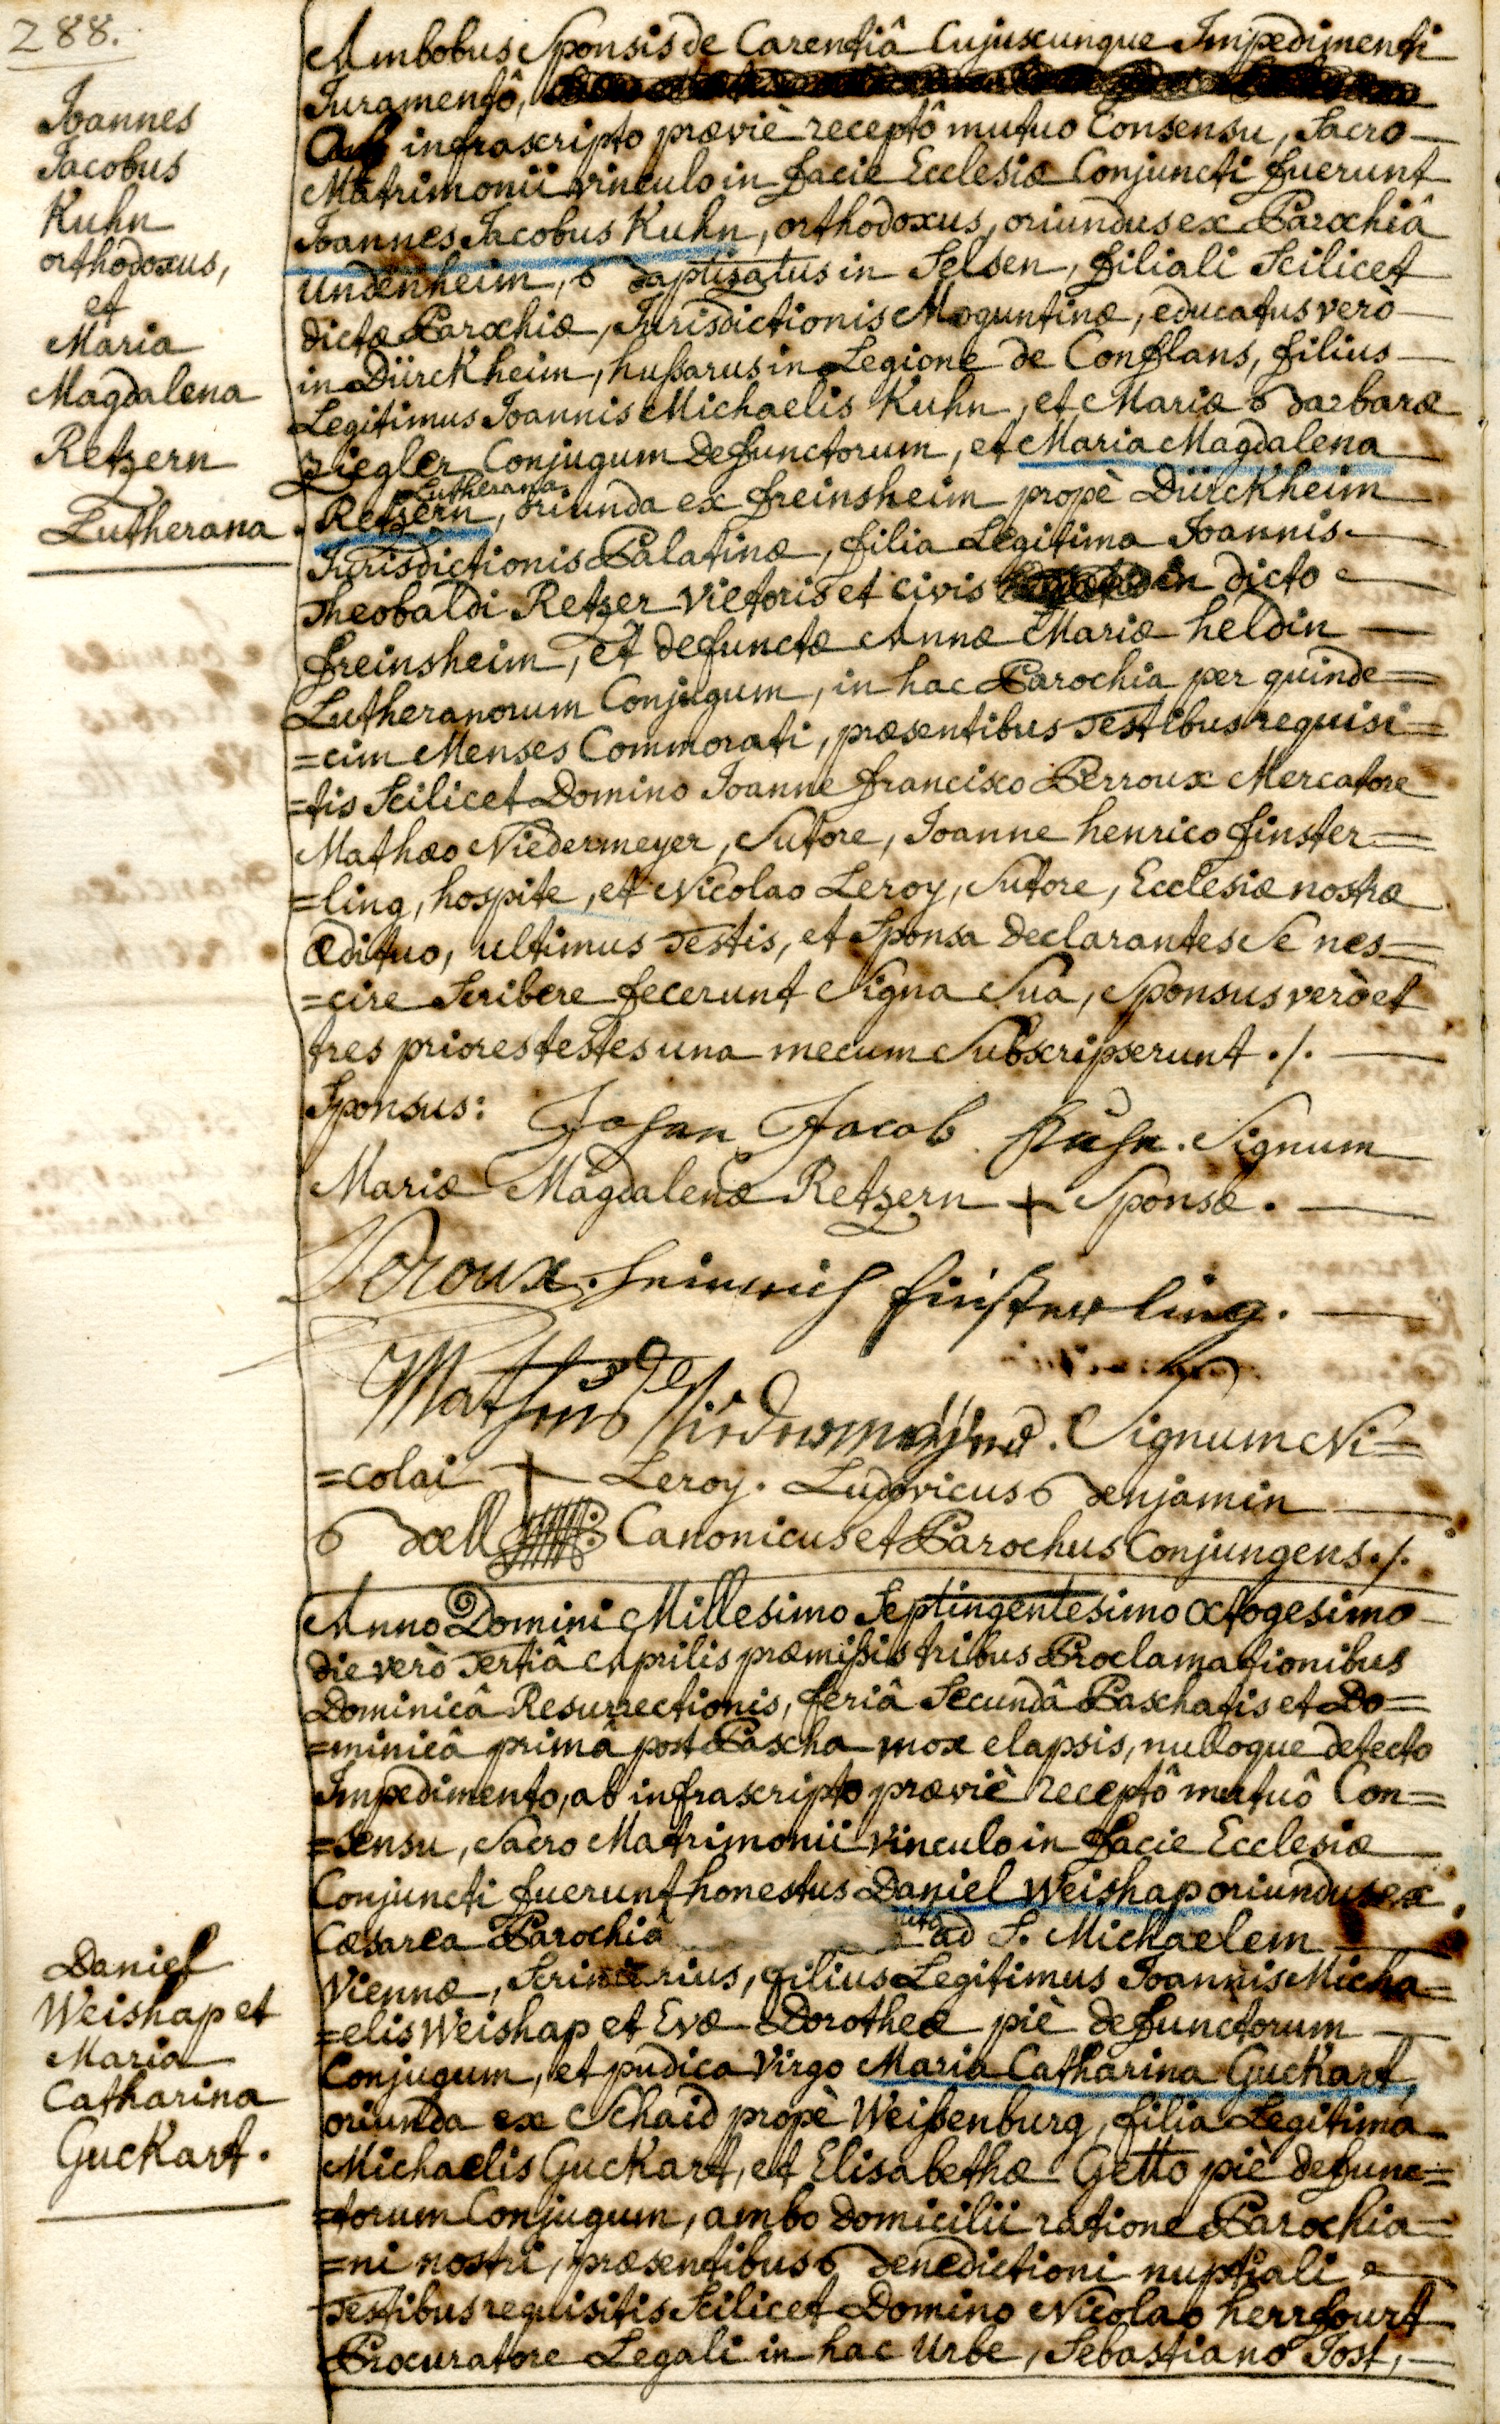 288.
Joannes
Jacobus
Kuhn
orthodoxus,
et
Maria
Magdalena
Retzern
Lutherana.
Ambobus Sponsis de Carentiâ Cujuscunque Impedimenti
Juramentô,
ab infrascripto præviè receptô mutuo Consensu, Sacro
Matrimonii vinculo in facie Ecclesiæ Conjuncti fuerunt
Joannes Jacobus Kuhn, orthodoxus, oriundus ex Parochiâ
Undenheim, baptizatus in Selsen, filiali Scilicet
dictæ Parochiæ, Jurisdictionis Moguntinæ, educatus verò
in Dürckheim, hußarus in Legione de Conflans, filius
Legitimus Joannis Michaelis Kuhn, et Mariæ barbaræ
Ziegler Conjugum defunctorum, et Maria Magdalena
Lutherana
Retzern, oriunda ex freinsheim propè Dürckheim
Jurisdictionis Palatinæ, filia Legitima Joannis
Theobaldi Retzer Vietoris et civis in dicto
freinsheim, et defunctæ Annæ Mariæ heldin
Lutheranorum Conjugum, in hac Parochia per quinde=
=cim Menses Commorati, præsentibus Testibus requisi=
=tis Scilicet Domino Joanne francisco Perroux Mercatore
Mathæo Niedermeyer, Sutore, Joanne henrico finster=
=ling, hospite, et Nicolao Leroy, Sutore, Ecclesiæ nostræ
ædituo, ultimus Testis, et Sponsa declarantes Se nes=
=cire Scribere fecerunt Signa Sua, Sponsus verò et
tres priores testes una mecum Subscripserunt ./.
Sponsus: Johan Jacob Kuhn. Signum
Mariæ Magdalenæ Retzern + Sponsæ.
Peroux. Heinrich finsterling.
Matheus Niedermeyer. Signum Ni=
=colai + Leroy. Ludovicus benjamin
boell Canonicus et Parochus Conjungens ./.
Anno Domini Millesimo Septingentesimo Octogesimo
die verò Tertiâ Aprilis præmißis tribus Proclamationibus
Dominicâ Resurrectionis, feriâ Secundâ Paschatis et Do=
=minicâ primâ post Pascha mox elapsis, nulloque detecto
Impedimento, ab infrascripto præviè receptô mutuô Con=
=sensu, Sacro Matrimonii vinculo in facie Ecclesiæ
Conjuncti fuerunt honestus Daniel Weishap oriundus ex
Cæsarea Parochiâ ad S. Michaelem
Viennæ, Scrinarius, filius Legitimus Joannis Micha=
=elis Weishap et Evæ Dorotheæ piè defunctorum
Conjugum, et pudica Virgo Maria Catharina Guckart,
oriunda ex Schaid propè Weißenburg, filia Legitima
Michaelis Guckart, et Elisabethæ Getto piè defunc=
=torum Conjugum, ambo domicilii ratione Parochia=
=ni nostri, præsentibus benedictioni nuptiali
Testibus requisitis Scilicet Domino Nicolao herrfourt
Procuratore Legali in hac Urbe, Sebastiano Jost,
Daniel
Weishap et
Maria
Catharina
Guckart.